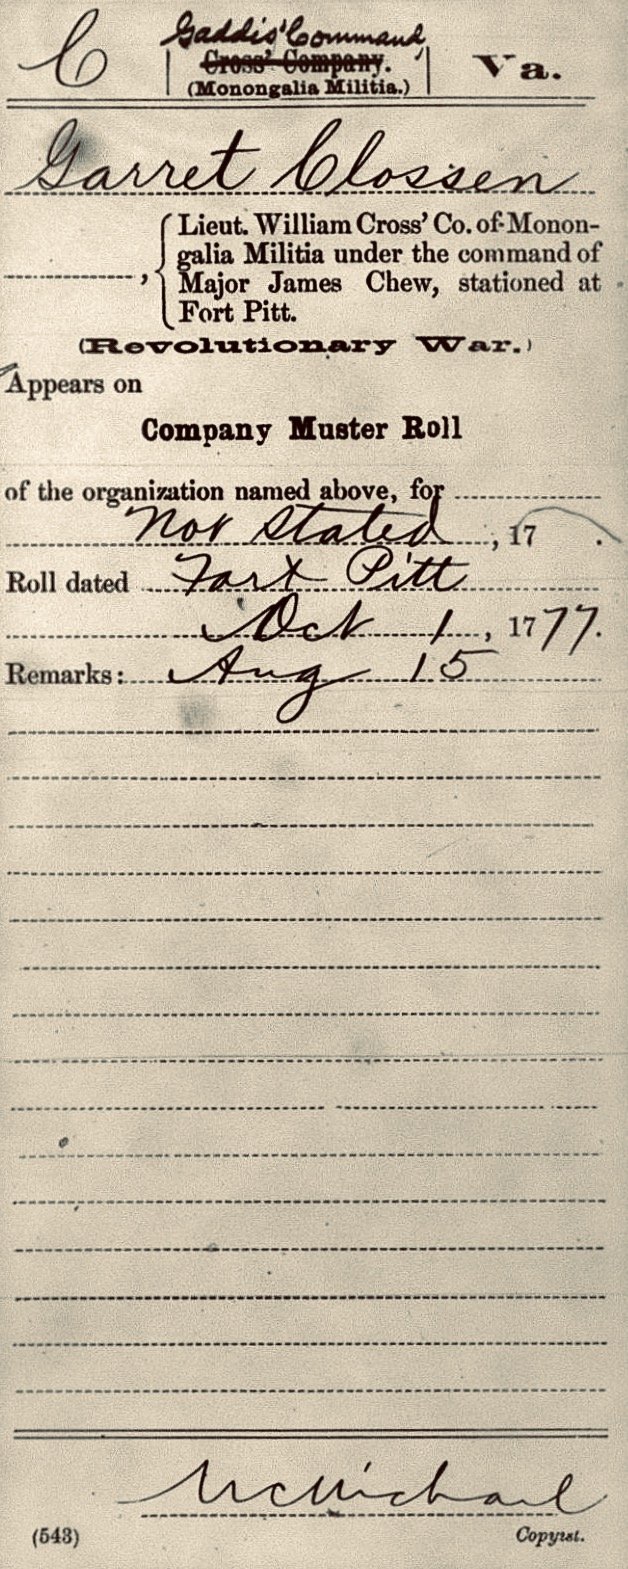 C
Gaddis' Command,
Cross' Company.
(Monongalia Militia.)
Va.
Garret Clossen
Lieut. William Cross' Co. of Monon-
galia Militia under the command of
Major James Chew, stationed at
Fort Pitt.
(Revolutionary War.)
Appears on
Company Muster Roll
of the organization named above, for
Not Stated, 17 .
Roll dated Fort Pitt
Oct 1, 1777.
Remarks: Aug 15
McMichael
(543) Copyist.